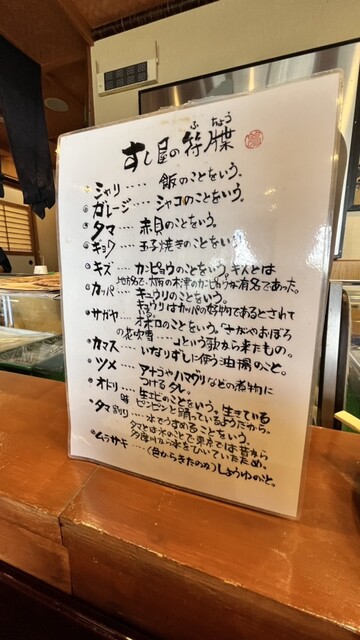 ふちょう
すし屋の符牒
シャリ…… 飯のことをいう。
ガレージ…… シャコのことをいう。
タマ…… 赤貝のことをいう。
ギョク…… 玉子焼きのことをいう
キズ…… カンピョウのことをいう。キズとは
地方名で、大阪の木津のカンピョウが有名であった。
カッパ…… キュウリのことをいう。
キュウリはカッパの好物であるとされて
いる。
サガヤ…… オボロのことをいう。「さがやおぼろ
の花吹雪……」という歌から来たもの。
カマス…… いなりずしに使う油揚のこと。
ツメ…… アナゴやハマグリなどの煮物に
つけるタレ。
オドリ…… 生エビのことをいう。生きている
時ピンピンと踊っているようだから。
タマ割り…… 水でうすめることをいう。
タマとは水のことで東京では昔から
多摩川から水をひいていたため。
ムラサキ……(色からきたのか)しょうゆのこと。